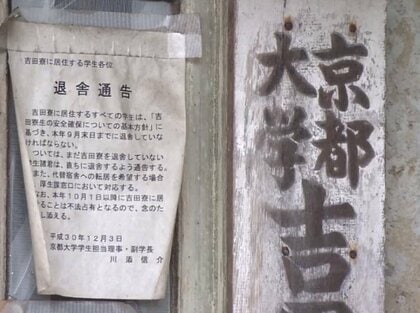 吉田寮に居住する学生各位
退舎通告
吉田寮に居住するすべての学生は、「吉
田寮生の安全確保についての基本方針」に
基づき、本年９月末日までに退舎していな
ければならない。
ついては、まだ吉田寮を退舎していない
学生諸君は、直ちに退舎するよう通告する。
また、代替宿舎への転居を希望する場合
、厚生課窓口において対応する。
なお、本年１０月１日以降に吉田寮に居
することは不法占有となるので、念のた
め申し添える。
平成３０年１２月３日
京都大学学生担当理事・副学長
川添信介
京都
大学
吉